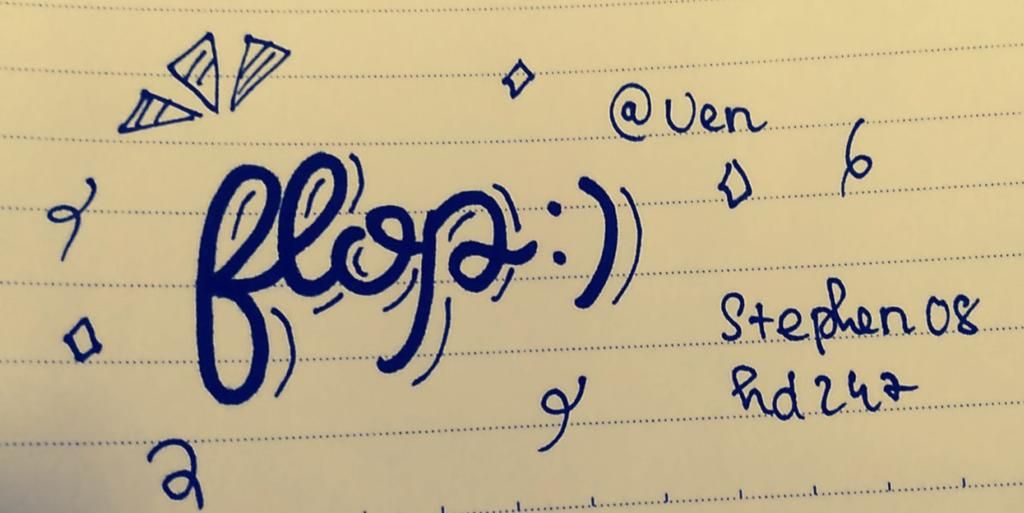 @Ven
flop:)
Stephen08
hd247